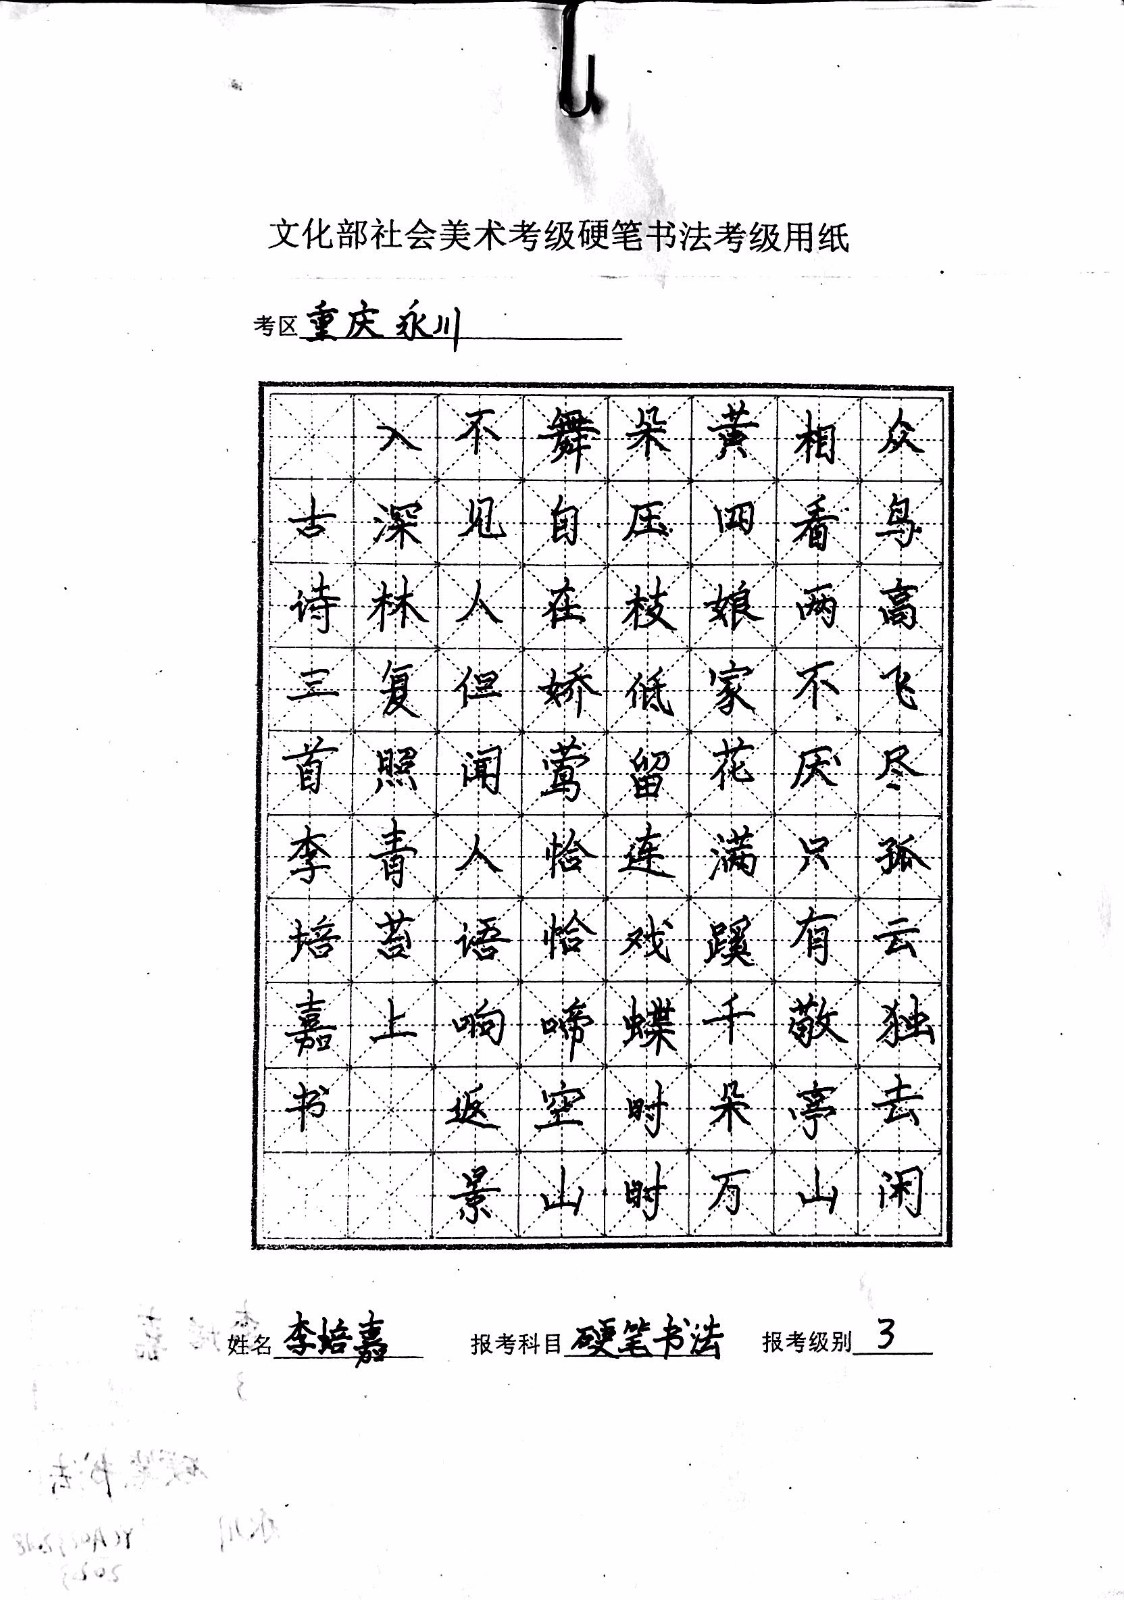 文化部社会美术考级硬笔书法考级用纸
考区 重庆永川
众鸟高飞尽孤云独去闲
相看两不厌只有敬亭山
黄四娘家花满蹊千朵万
朵压枝低留连戏蝶时时
舞自在娇莺恰恰啼空山
不见人但闻人语响返景
入深林复照青苔上
古诗三首李培嘉书
姓名 李培嘉 报考科目 硬笔书法 报考级别 3